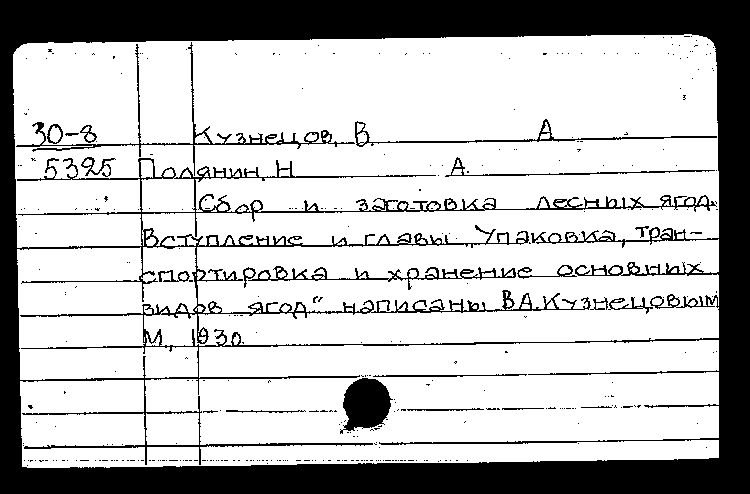 30-8 Кузнецов, В. А
5325 Полянин, Н А.
Сбор и заготовка лесных ягод.
Вступление и главы „Упаковка, тран-
спортировка и хранение основных
видов ягод" написаны В.А.Кузнецовым
М., 1930